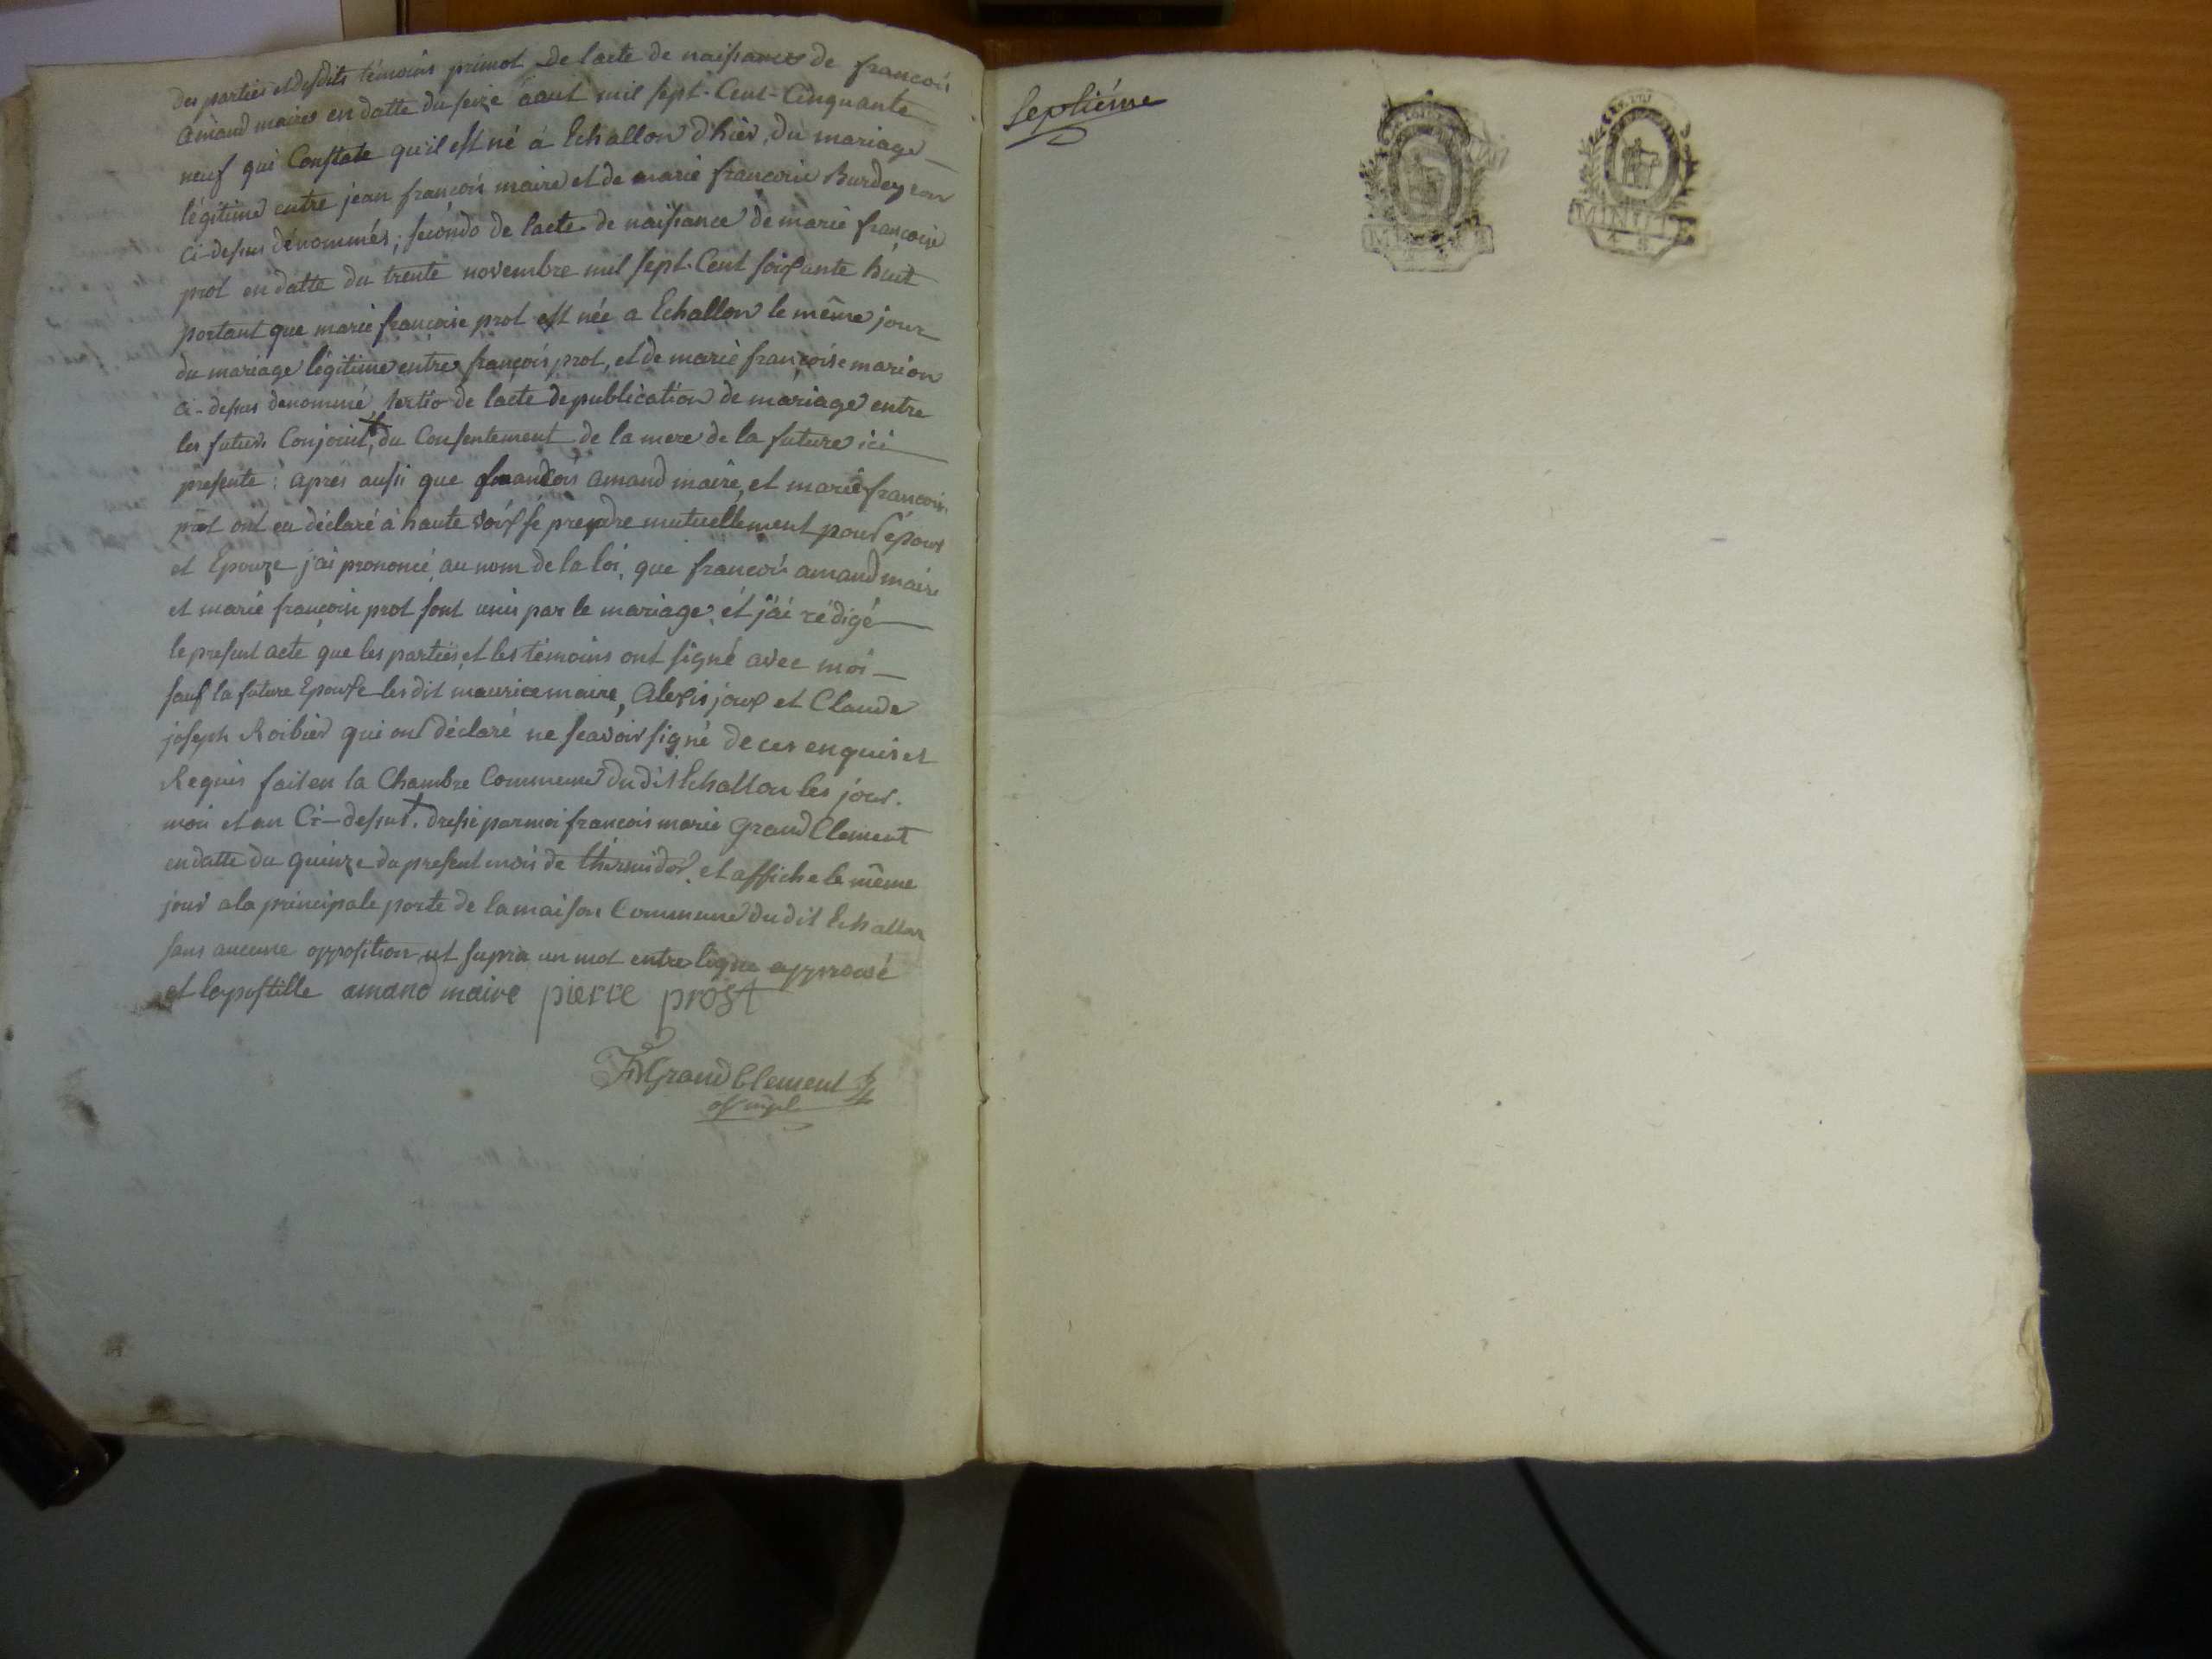 des parties et desdits témoins primot de l'acte de naissance de francois
amand maire en datte du seize aout mil sept-Cent-Cinquante
neuf qui Constate qu'il est né a Echallon d'hier, du mariage
légitime entre jean françois maire et de marie francoise Burdeyron
Ci-dessus dénommés; secondo de l'acte de naissance de marie francoise
prot en datte du trente novembre mil sept-Cent soixante huit
portant que marie francoise prot est née a Echallon le même jour
du mariage légitime entre françois prot, et de marie françoise marion
ci-dessus denommé, tertio de l'acte de publication de mariage entre
les futurs Conjoint, du Consentement de la mere de la future ici
presente: apres aussi que francois amand maire, et marie francoise
prot ont eu déclaré à haute voix se prendre mutuellement pour époux
et Epouze j'ai prononcé au nom de la loi, que francois amand maire
et marie francoise prot sont unis par le mariage, et j'ai rédigé
le present acte que les parties, et les témoins ont signé avec moi
sauf la future Epouse les dit maurice maire, alexis joux et Claude
joseph Roibier qui ont déclaré ne scavoir signé de ces enquis et
Requis fait en la Chambre Commune du dit Echallon les jour.
mois et an Ci-dessus. dressé par moi francois marie Grand Clement
en datte du quinze du present mois de thermidor. et affiche le même
jour a la principale porte de la maison Commune du dit Echallon
sans aucune opposition ut supra un mot entre ligne approuvé
et l'apostille amand maire pierre prost
Grand Clement
off mpl
Septiéme
MINUTE